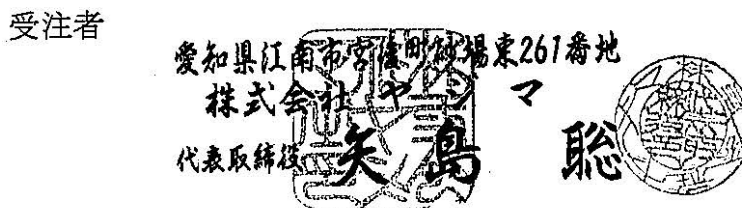 受注者
愛知県江南市宮後町砂場東261番地
株式会社ヤジマ
代表取締役 矢島 聡